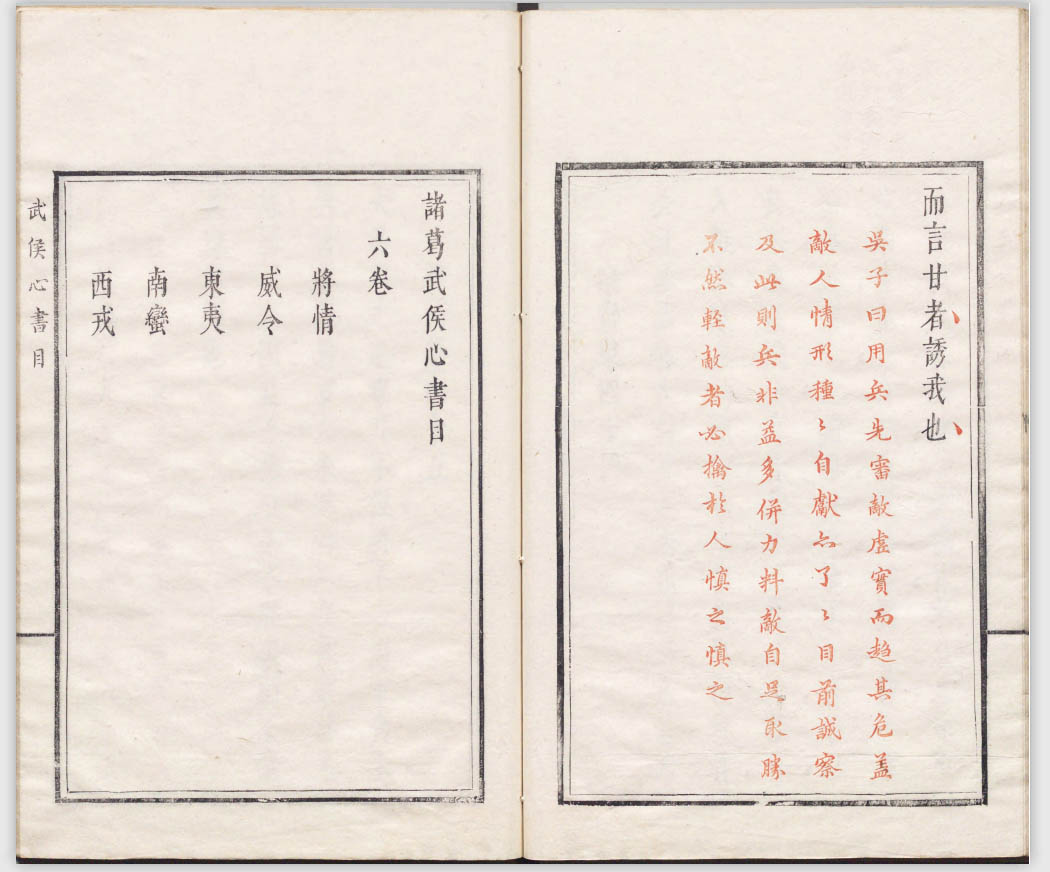 而言甘者誘我也
吳子曰用兵先審敵虛實而趋其危盖
敵人情形種〻自獻亦了〻目前誠察
及此則兵非益多併力料敵自足取勝
不然輕敵者必擒於人慎之慎之
諸葛武侯心書目
六卷
將情
威令
東夷
南蠻
西戎
武侯心書目